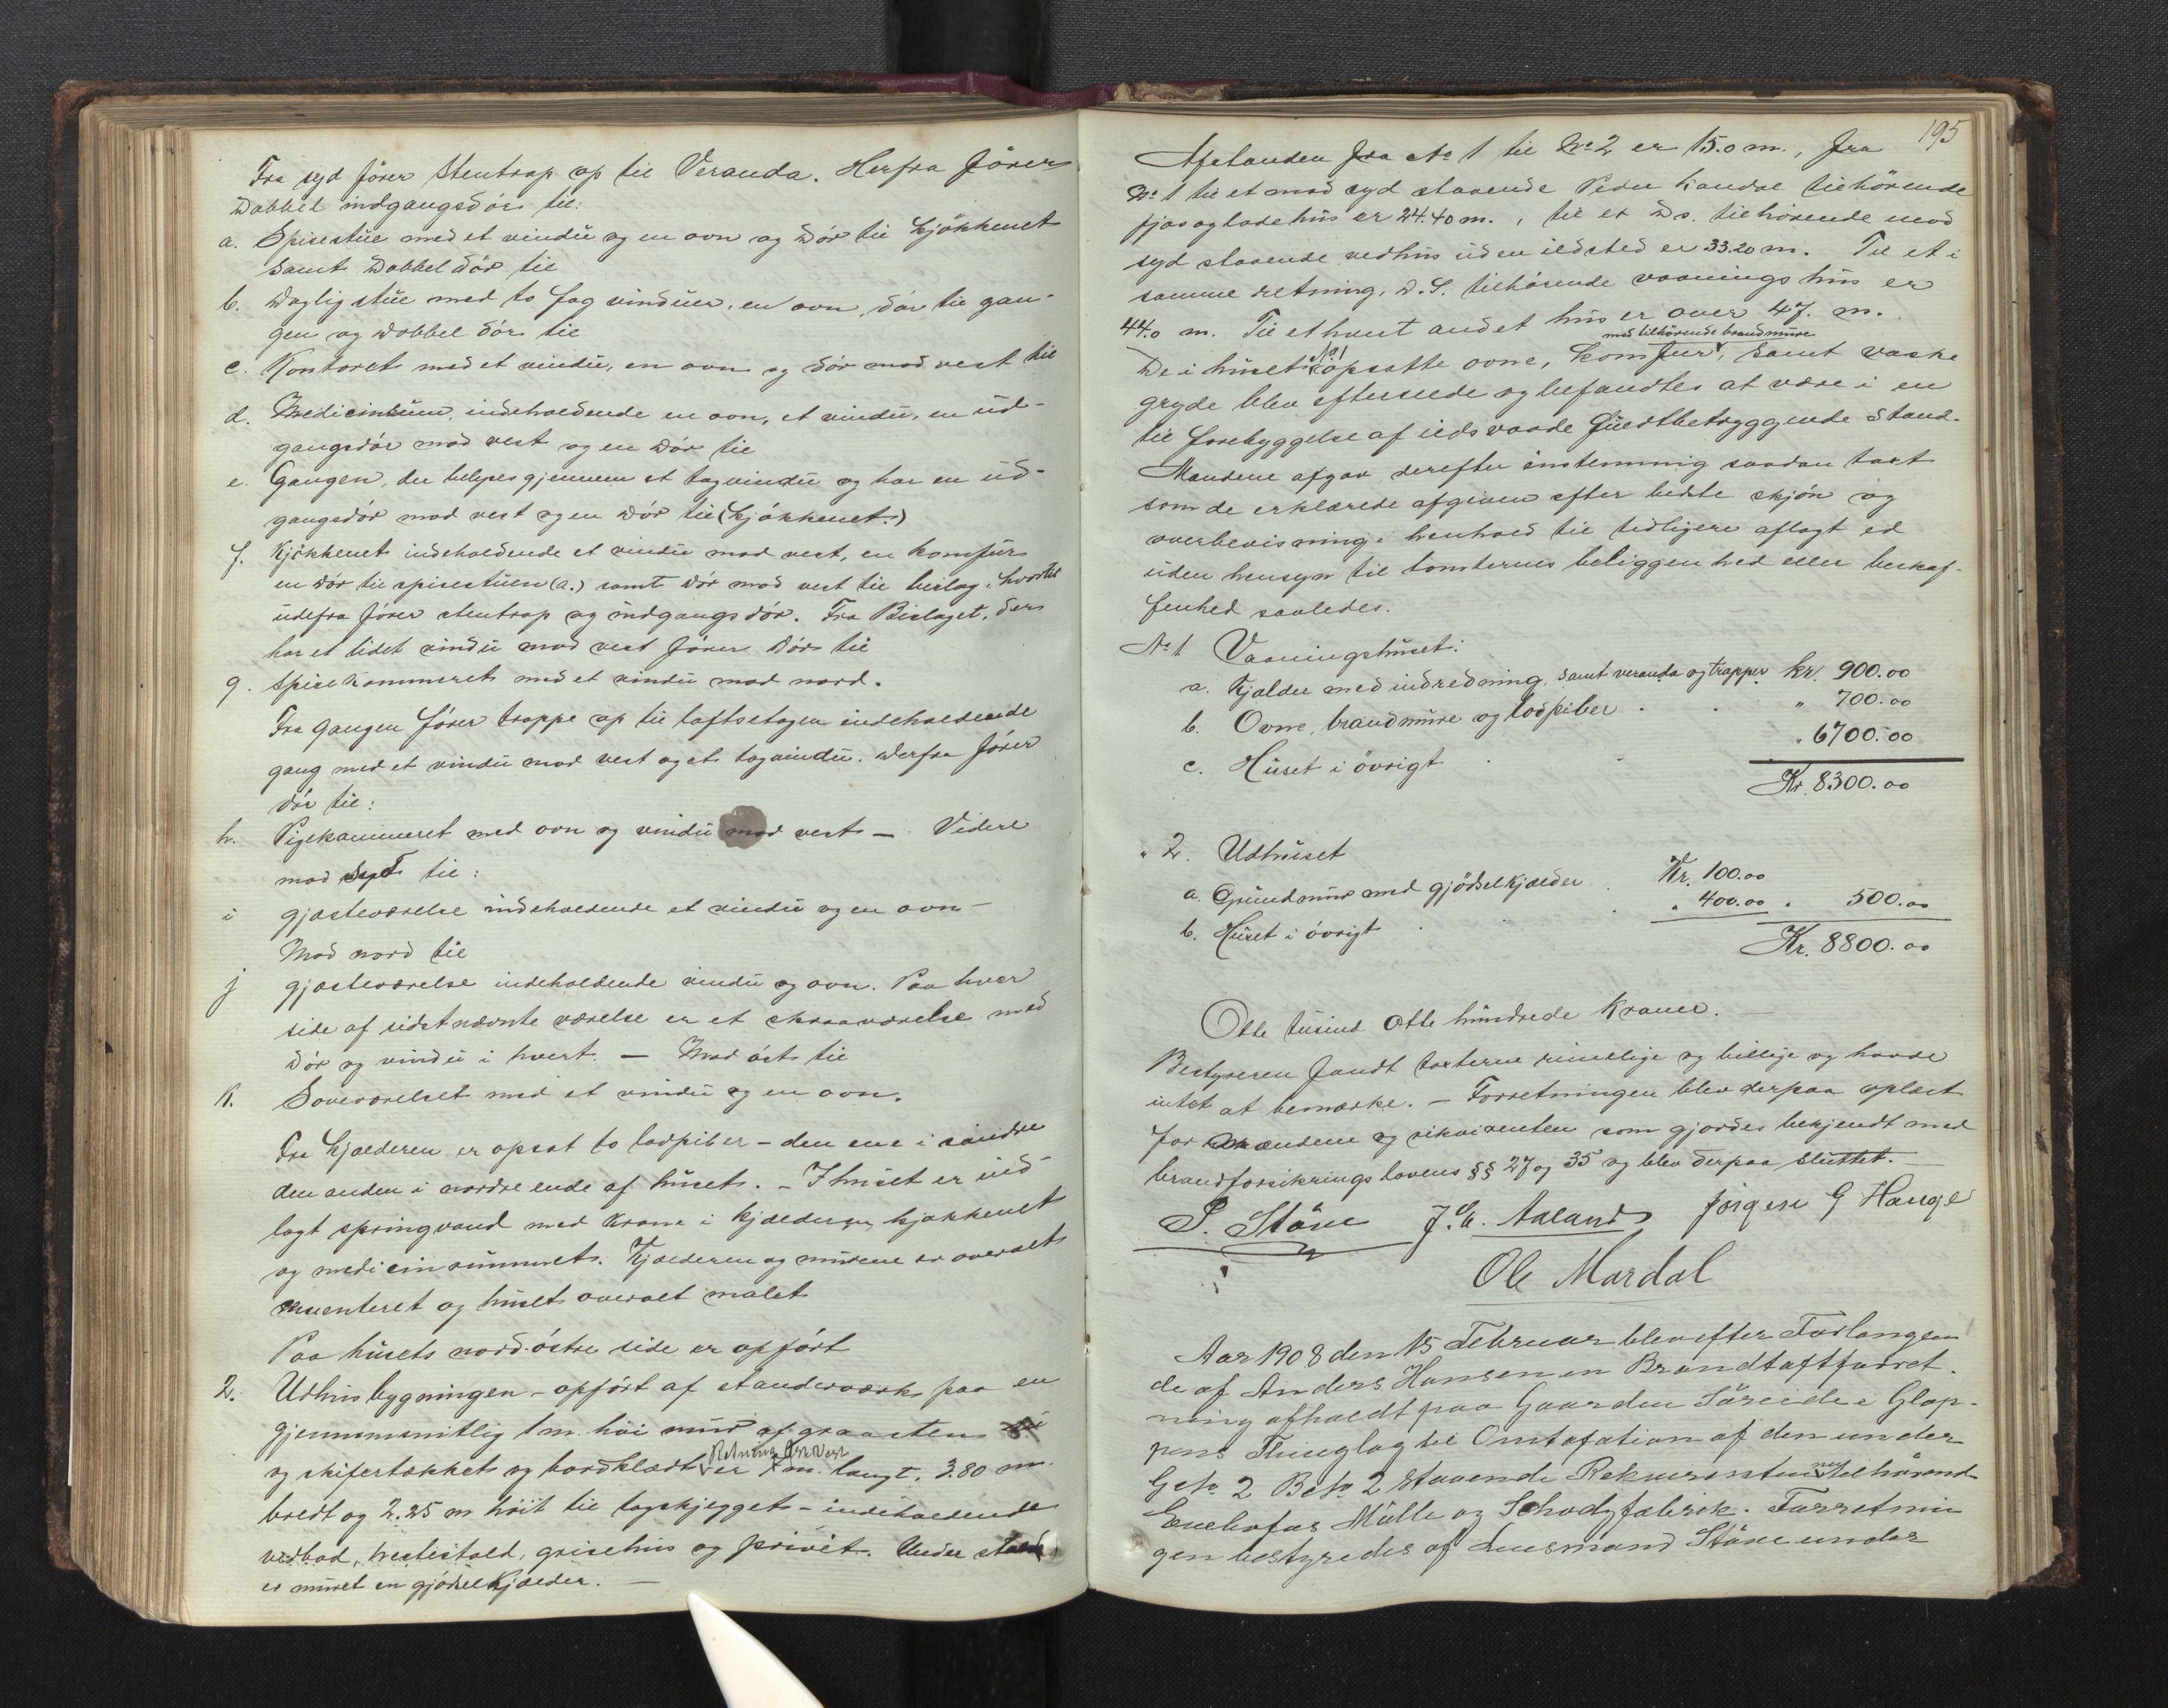 Fra syd fører Stentrap op til Veranda. Herfra fører
dobbel indgangsdör til:
a. Spisestue med et vindu og en ovn og dör til kjökkenet
samt dobbel dör til
b. Dagligstue med to fag vinduer, en ovn, dör til gan-
gen og dobbel dör til
c. Kontoret med et vindu, en ovn og dör mod vest til
d. Medicinrum, indeholdende en ovn, et vindu, en ud-
gangsdör mod vest og en dör til
e. Gangen, der belyses gjennem et tagvindu og har en ud-
gangsdör mod vest og en dör til (kjökkenet.)
f. Kjökkenet indeholdende et vindu mod vest, en komfur
en dör til spisestuen (a.) samt dör mod vest til bislag, hvortil
udefra fører stentrap og indgangsdör. Fra Bislaget, der
har et lidet vindu mod vest fører dör til
g. Spisekammeret med et vindu mod nord.
Fra gangen fører trappe op til loftsetagen indeholdende
gang med et vindu mod vest og et tagvindu. Derfra fører
dör til:
h. Pigekammeret med ovn og vindu mod vest — Videre
mod syd til:
i gjesteværelse indeholdende et vindu og en ovn —
Mod nord til
j gjesteværelse indeholdende vindu og ovn. Paa hver
side af sidstnævnte værelse er et skraaværelse med
dör og vindu i hvert. — Mod öst til
k. Soveværelset med et vindu og en ovn.
Fra Kjælderen er opsat to lodpiber – den ene i söndre
den anden i nordre ende af huset. – I huset er ind-
lagt springvand med krane i kjælderen, kjøkkenet
og medicinrummet. Kjælderen og murene er overalt
cementeret og huset overalt malet
Paa husets nord-östre side er opfört
2. Udhusbygningen – opfört af standerværk paa en
gjennemsnitlig 1 m. höi mur af graasten
og skifertækket og bordklædt Retning Öst Vest er 7 m. langt, 3.80 m.
bredt og 2.25 m höit til tagskjegget – indeholdende
vedbod, hestestald, grisehus og privét. Under stald
er muret en gjödselkjælder. —
195
Afstanden fra No 1 til No 2 er 15.0 m., fra
No 1 til et mod syd staaende Peder Kandal tilhörende
fjøs og ladehus er 24.40 m., til et D.s. tilhörende mod
syd staaende vedhus uden ildsted er 33.20 m. Til et i
samme retning, D.S. tilhörende vaaningshus er
44.0 m. Til ethvert andet hus er over 47. m.
med tilhörende brandmure
De i huset No 1 opsatte ovne, komfur, samt vaske
gryde blev efterseede og befandtes at være i en
til forebyggelse af ildsvaade fuldtbetryggende Stand.
Mændene afgav derefter enstemmig saadan taxt
som de erklærede afgiven efter bedste skjön og
overbevisning i henhold til tidligere aflagt ed
uden hensyn til tomternes beliggenhed eller beskaf-
fenhed saaledes.
No 1 Vaaningshuset:
a. Kjelder med indredning, samt veranda og trapper kr. 900.00
b. Ovne, brandmure og lodpiber . . „ 700.00
c. Huset i övrigt . . „ 6700.00
Kr. 8300.00
„ 2. Udhuset
a. Grundmur med gjödselkjælder . Kr. 100.00
b. Huset i övrigt . . „ 400.00 „ 500.00
Kr. 8800.00
Otte tusind otte hundrede Kroner. —
Bestyreren fandt taxterne rimelige og billige og havde
intet at bemærke. – Forretningen blev derpaa oplæst
for mændene og rikvirenten som gjordes bekjendt med
brandforsikringslovens §§ 27 og 35 og blev derpaa sluttet. —
P. Stöve J. A. Aaland Jörgen G Hauge
Ole Mardal
Aar 1908 den 15 Februar blev efter Forlangen
de af Anders Hansen en Brandtaxtforret-
ning afholdt paa Gaarden Söreide i Glop-
pens Thinglag til Omtaxation af den under
Gno 2 Bno 2 staaende Rekvirenten tilhörende
Enebofos Mölle og Schodyfabrik. Forretnin
gen bestyredes af Lensmand Stöve under